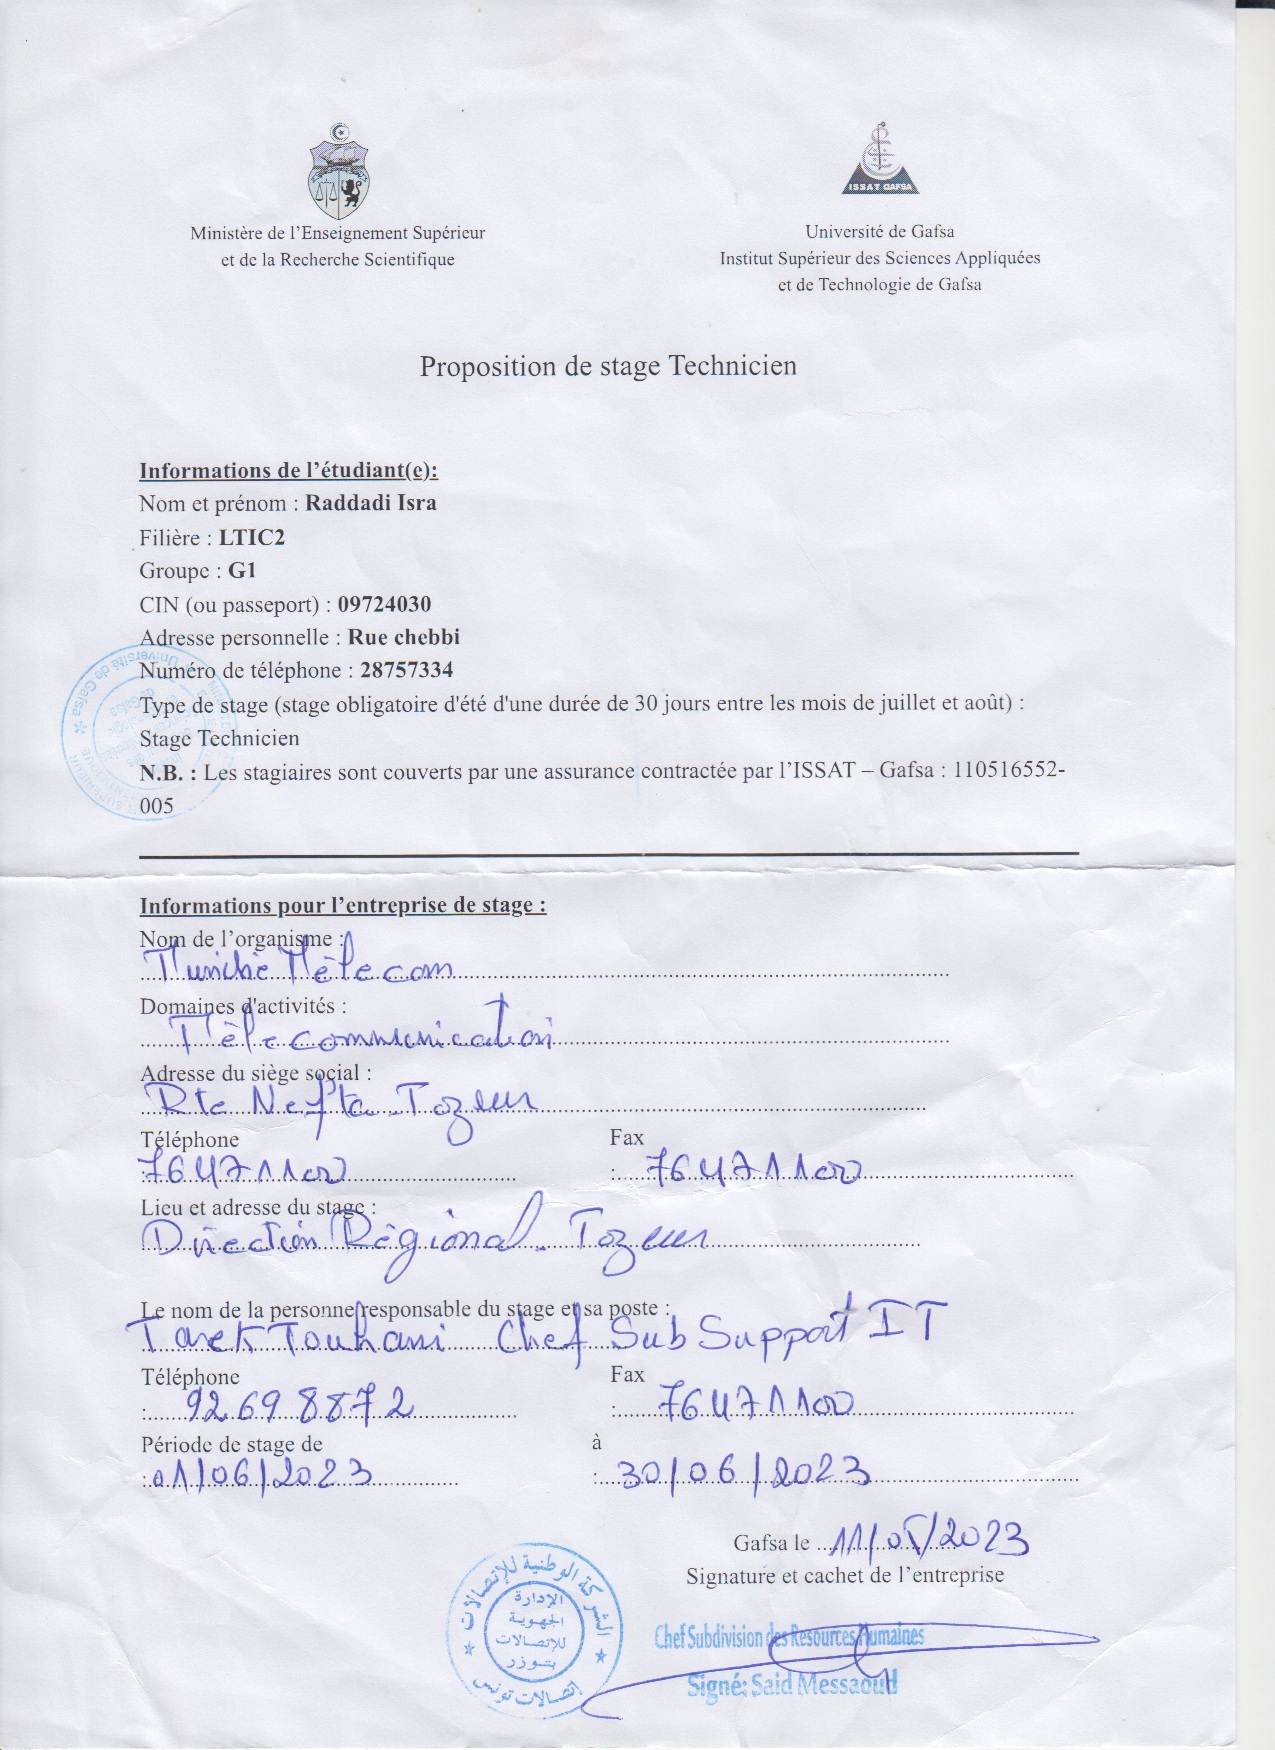 ISSAT GAFSA
Ministère de l'Enseignement Supérieur
et de la Recherche Scientifique
Université de Gafsa
Institut Supérieur des Sciences Appliquées
et de Technologie de Gafsa
Proposition de stage Technicien
Informations de l'étudiant(e):
Nom et prénom : Raddadi Isra
Filière : LTIC2
Groupe : G1
CIN (ou passeport) : 09724030
Adresse personnelle : Rue chebbi
Numéro de téléphone : 28757334
Type de stage (stage obligatoire d'été d'une durée de 30 jours entre les mois de juillet et août) :
Stage Technicien
N.B. : Les stagiaires sont couverts par une assurance contractée par l'ISSAT – Gafsa : 110516552-
005
Université de Gafsa
Informations pour l'entreprise de stage :
Nom de l'organisme :
Tunisie Télecom
Domaines d'activités :
Télecommunication
Adresse du siège social :
Rte Nefta Tozeur
Téléphone Fax
: 76471100 : 76471100
Lieu et adresse du stage :
Direction Régional. Tozeur
Le nom de la personne responsable du stage et sa poste :
Tarek Touhami Chef Sub Support IT
Téléphone Fax
: 92698872 : 76471100
Période de stage de à
: 01/06/2023 : 30/06/2023
Gafsa le 11/05/2023
Signature et cachet de l'entreprise
الشركة الوطنية للإتصالات
الإدارة
الجهوية
للإتصالات
بتوزر
إتصالات تونس
Chef Subdivision des Resources Humaines
Signé: Said Messaoud